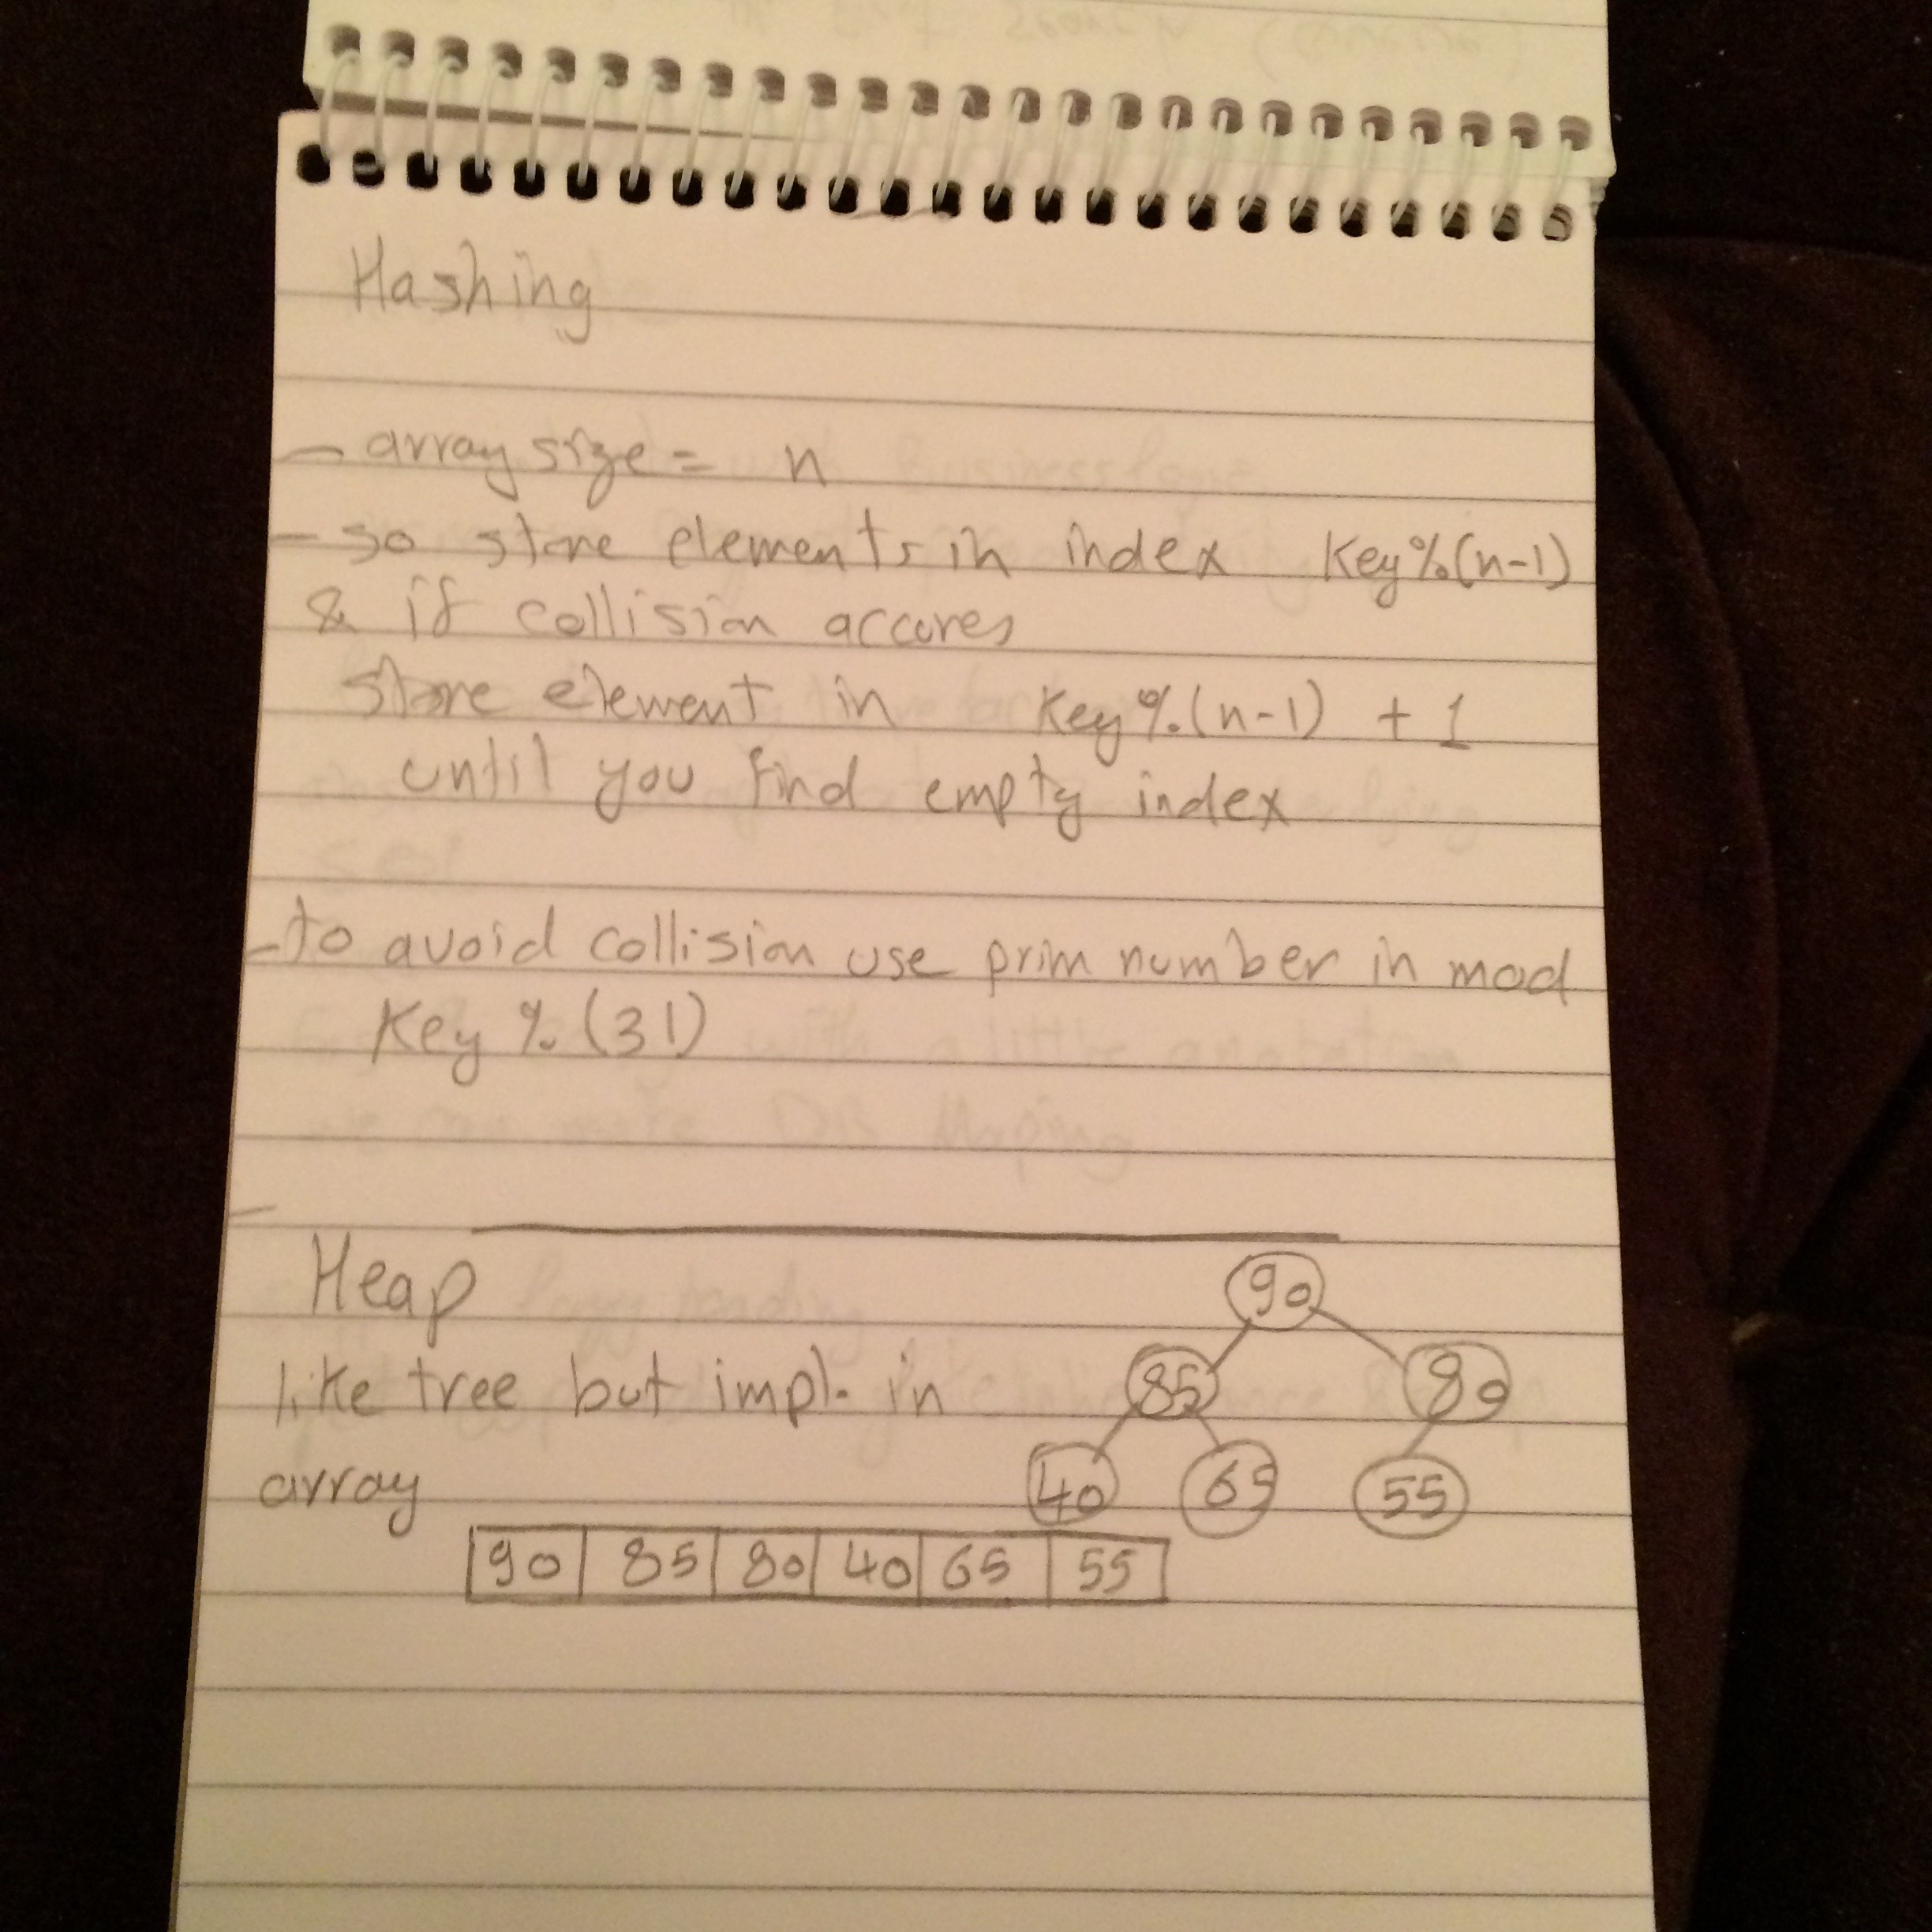 Hashing
- array size = n
- so store elements in index Key%(n-1)
& if collision accures
store element in Key%(n-1) + 1
until you find empty index
- to avoid collision use prim number in mod
Key % (31)
Heap
like tree but impl. in
array
90
85 80
40 65 55
90 85 80 40 65 55